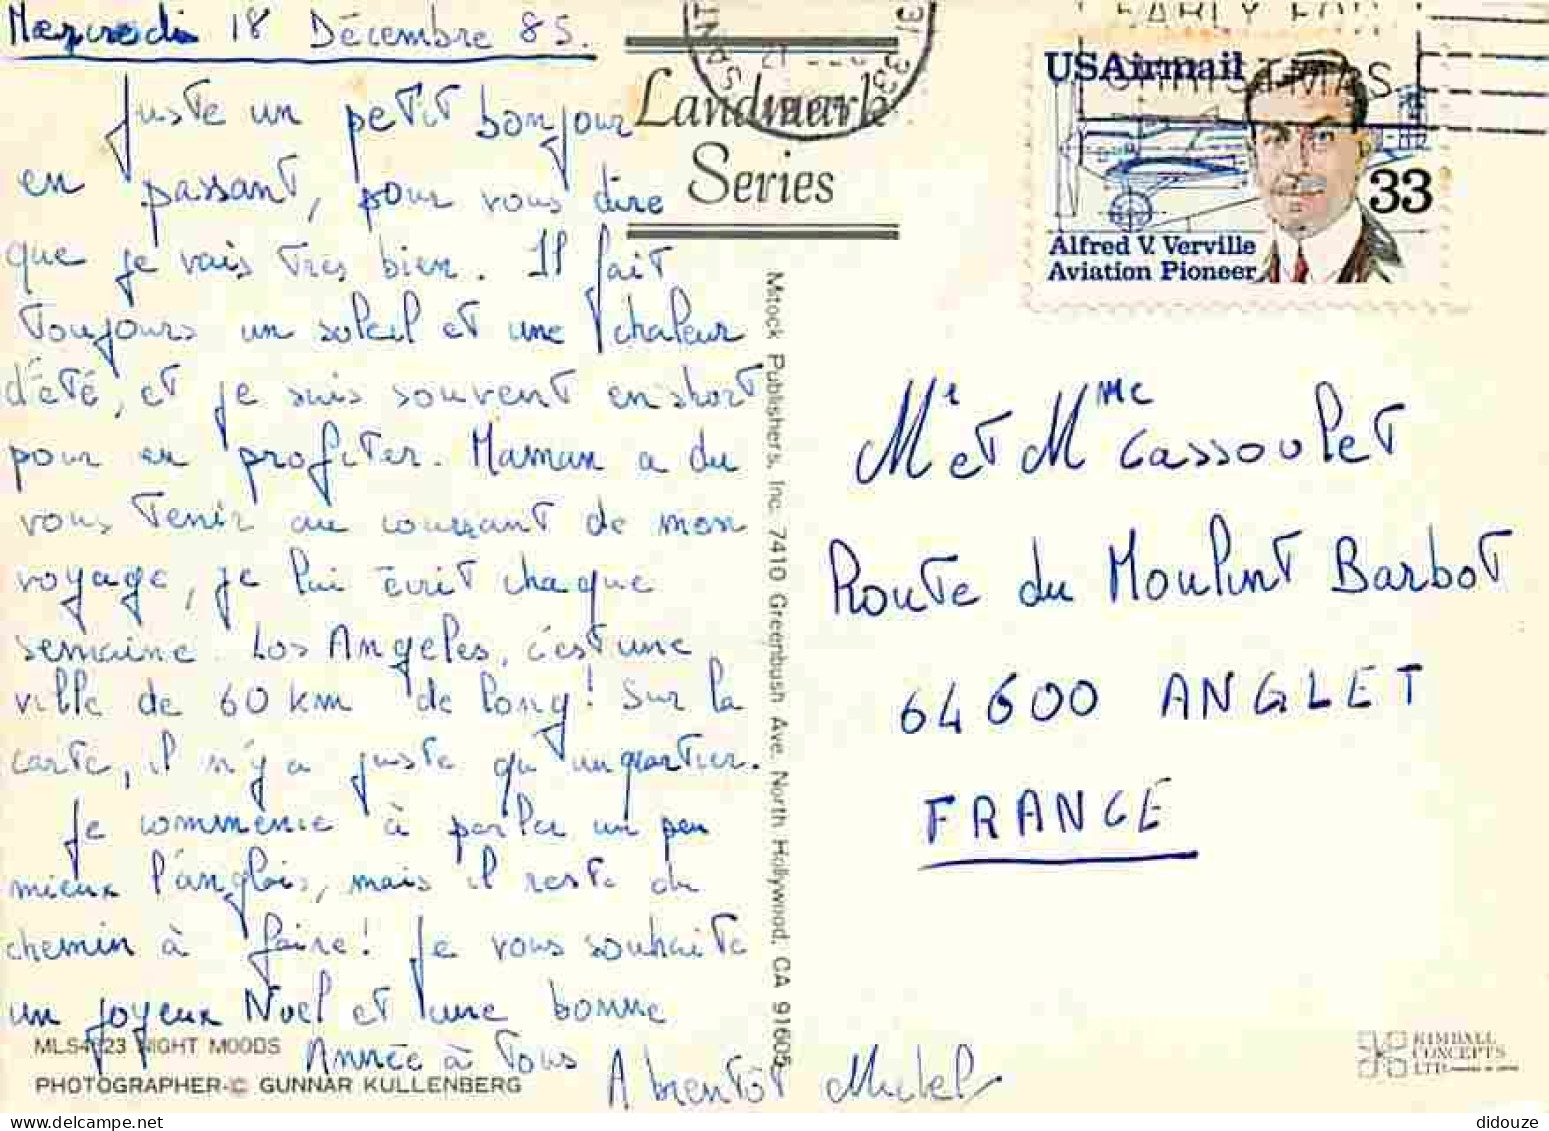 Mercredi 18 Décembre 85.
Juste un petit bonjour
en passant, pour vous dire
que je vais tres bien. Il fait
toujours un soleil et une chaleur
d'été, et je suis souvent en short
pour en profiter. Maman a du
vous tenir au courrant de mon
voyage, je lui écrit chaque
semaine. Los Angeles, c'est une
ville de 60 km de long! Sur la
carte, il n'y a juste qu'un quartier.
Je commence à parler un peu
mieux l'anglais, mais il reste du
chemin à faire! Je vous souhaite
un joyeux Noel et une bonne
Année à tous
A bientôt Michel
MLS4123 NIGHT MOODS
PHOTOGRAPHER © GUNNAR KULLENBERG
Landmark
Series
Mitock Publishers, Inc. 7410 Greenbush Ave. North Hollywood, CA 91605
EARLY FOR
CHRISTMAS
USAirmail
33
Alfred V. Verville
Aviation Pioneer
Mr et Mme Cassoulet
Route du Moulint Barbot
64600 ANGLET
FRANCE
KIMBALL
CONCEPTS
LTD
didouze